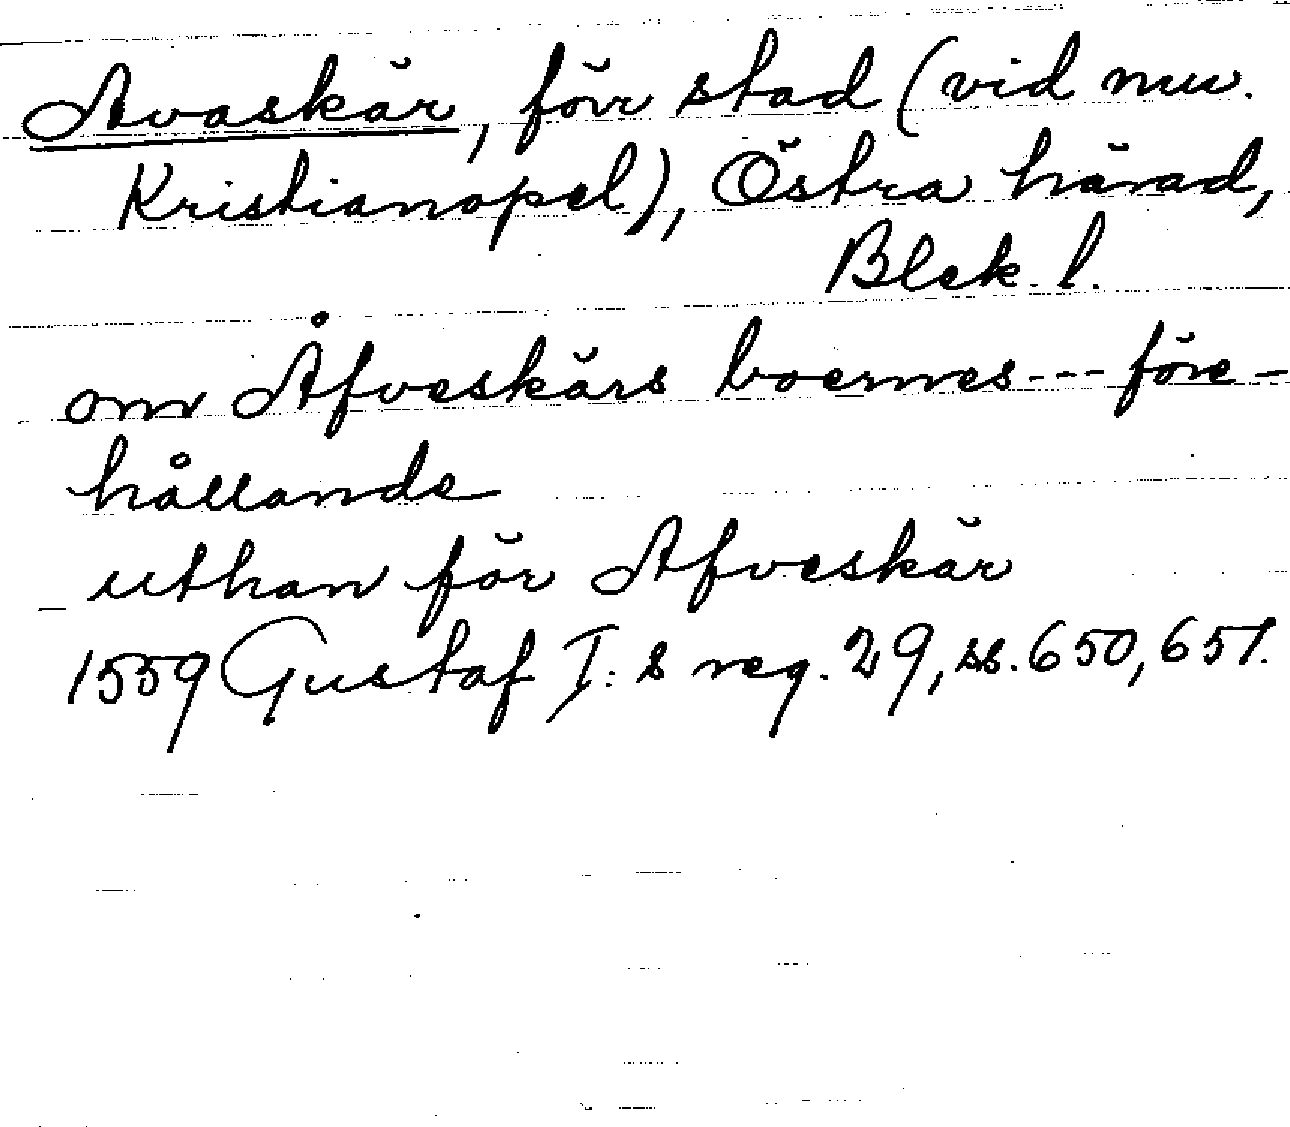 Avaskär, förr stad (vid nuv.
Kristianopel), Östra härad,
Blek. l.
om Åfveskärs boernes --- före-
hållande
uthan för Afveskär
1559 Gustaf I:s reg. 29, ss. 650, 651.